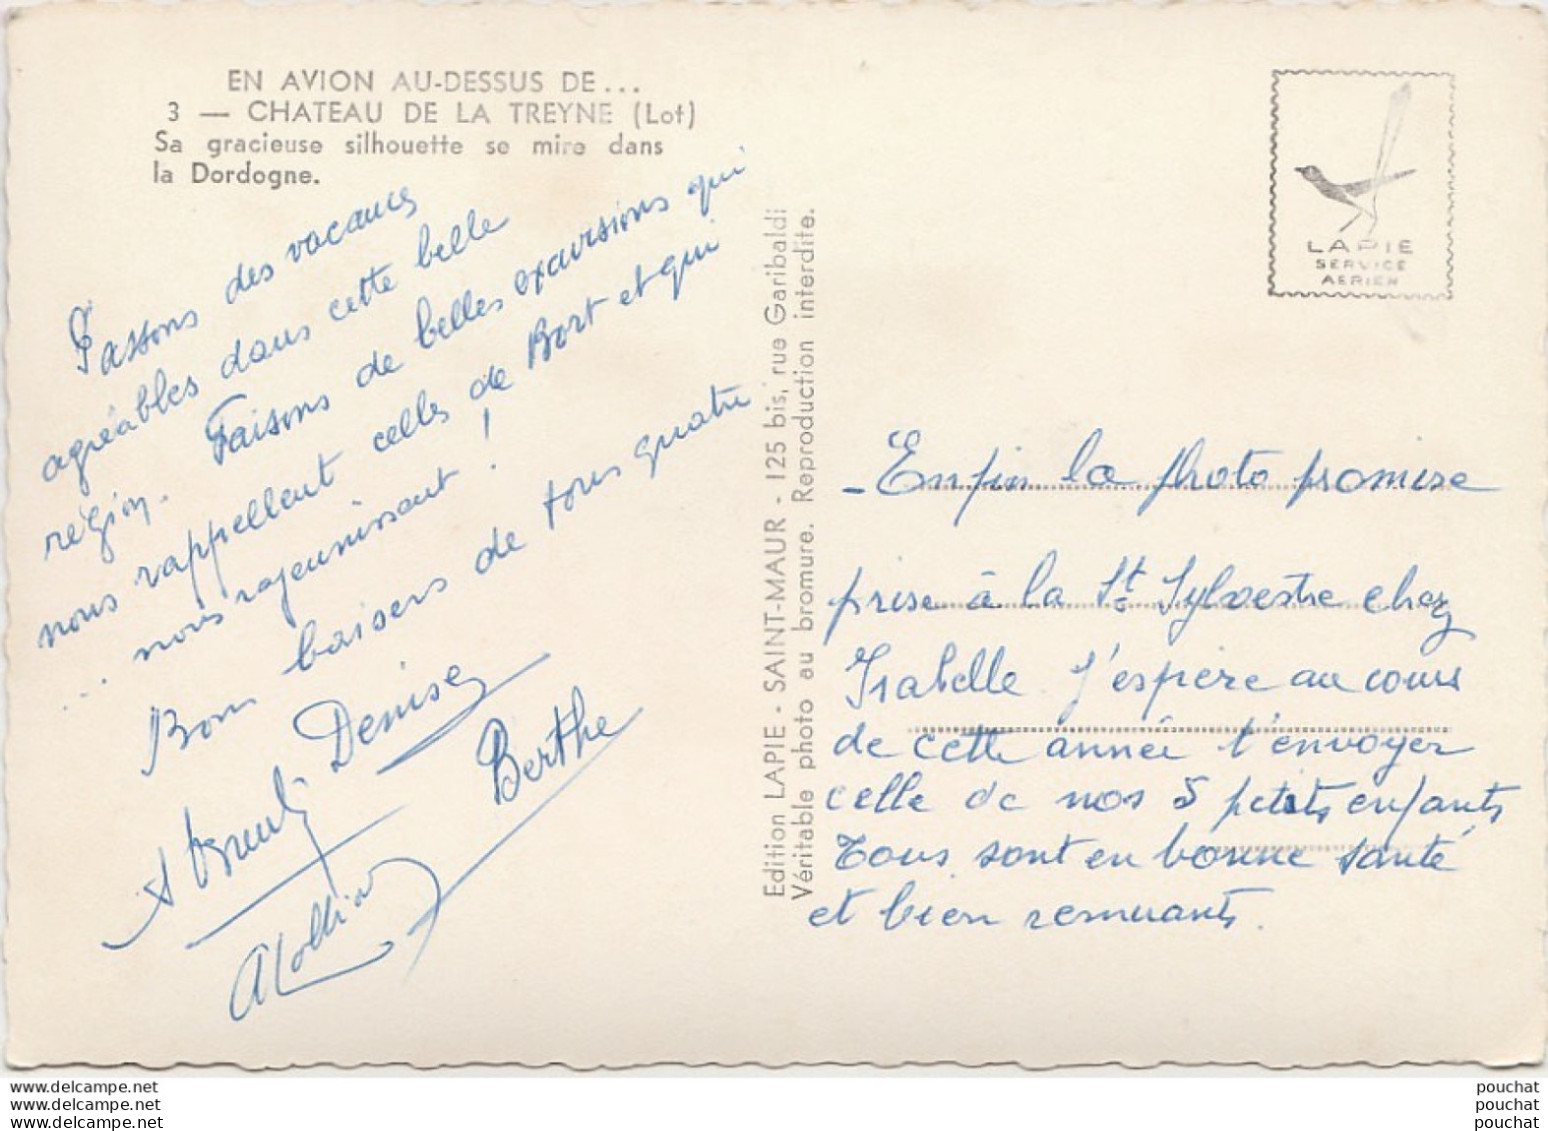 EN AVION AU-DESSUS DE...
3 — CHATEAU DE LA TREYNE (Lot)
Sa gracieuse silhouette se mire dans
la Dordogne.
Passons des vacances
agréables dans cette belle
région. Faisons de belles excursions qui
nous rappellent celles de Bort et qui
... nous rajeunissent !
Bons baisers de tous quatre
Denise
Berthe
Edition LAPIE - SAINT-MAUR - 125 bis, rue Garibaldi
Véritable photo au bromure. Reproduction interdite.
LAPIE
SERVICE
AERIEN
- Enfin la photo promise
prise à la St Sylvestre chez
Isabelle J'espère au cours
de cette année t'envoyer
celle de nos 5 petits enfants
Tous sont en bonne santé
et bien remuants.
www.delcampe.net
www.delcampe.net
www.delcampe.net
pouchat
pouchat
pouchat